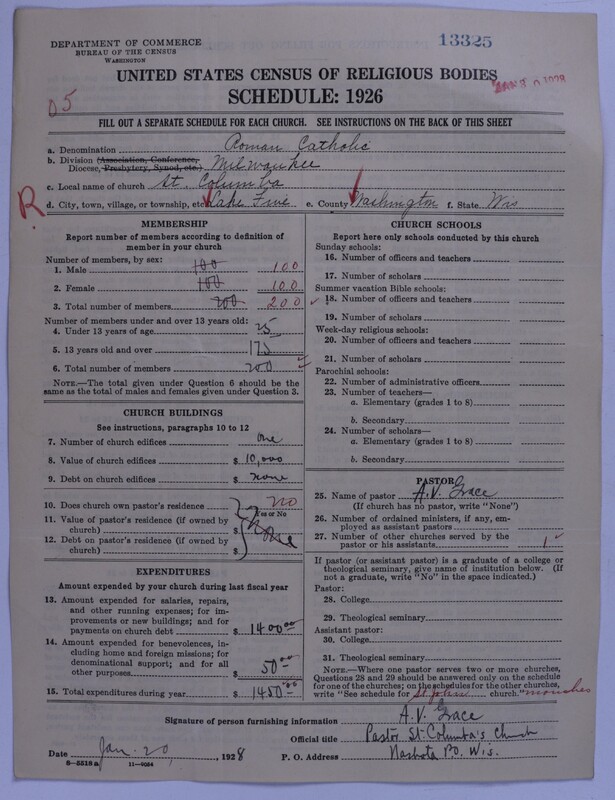 DEPARTMENT OF COMMERCE
BUREAU OF THE CENSUS
WASHINGTON
13325
JAN 30 1928
UNITED STATES CENSUS OF RELIGIOUS BODIES
SCHEDULE: 1926
D5
FILL OUT A SEPARATE SCHEDULE FOR EACH CHURCH. SEE INSTRUCTIONS ON THE BACK OF THIS SHEET
a. Denomination Roman Catholic
b. Division (Association, Conference, Diocese, Presbytery, Synod, etc.) Milwaukee
c. Local name of church St. Columba
R
d. City, town, village, or township, etc. Lake Five e. County Washington f. State Wis
MEMBERSHIP
Report number of members according to definition of
member in your church
Number of members, by sex:
1. Male 100 100
2. Female 100 100
3. Total number of members 200 200
Number of members under and over 13 years old:
4. Under 13 years of age 25
5. 13 years old and over 175
6. Total number of members 200
NOTE.—The total given under Question 6 should be
the same as the total of males and females given under Question 3.
CHURCH BUILDINGS
See instructions, paragraphs 10 to 12
7. Number of church edifices one
8. Value of church edifices $ 10,000
9. Debt on church edifices $ none
10. Does church own pastor's residence no
Yes or No
11. Value of pastor's residence (if owned by
church) $ None
12. Debt on pastor's residence (if owned by
church) $
EXPENDITURES
Amount expended by your church during last fiscal year
13. Amount expended for salaries, repairs,
and other running expenses; for im-
provements or new buildings; and for
payments on church debt $ 1400 00
14. Amount expended for benevolences,
including home and foreign missions; for
denominational support; and for all
other purposes $ 50 00
15. Total expenditures during year $ 1450 00
CHURCH SCHOOLS
Report here only schools conducted by this church
Sunday schools:
16. Number of officers and teachers
17. Number of scholars
Summer vacation Bible schools:
18. Number of officers and teachers
19. Number of scholars
Week-day religious schools:
20. Number of officers and teachers
21. Number of scholars
Parochial schools:
22. Number of administrative officers
23. Number of teachers—
a. Elementary (grades 1 to 8)
b. Secondary
24. Number of scholars—
a. Elementary (grades 1 to 8)
b. Secondary
PASTOR
25. Name of pastor A.V. Grace
(If church has no pastor, write "None")
26. Number of ordained ministers, if any, em-
ployed as assistant pastors
27. Number of other churches served by the
pastor or his assistants 1
If pastor (or assistant pastor) is a graduate of a college or
theological seminary, give name of institution below. (If
not a graduate, write "No" in the space indicated.)
Pastor:
28. College
29. Theological seminary
Assistant pastor:
30. College
31. Theological seminary
NOTE.—Where one pastor serves two or more churches,
Questions 28 and 29 should be answered only on the schedule
for one of the churches; on the schedules for the other churches,
write "See schedule for St John church." monches
Signature of person furnishing information A.V. Grace
Official title Pastor St. Columba's Church
Date Jan. 20, 1928 P. O. Address Nashota P.O. Wis.
8—5518 a 11—9054